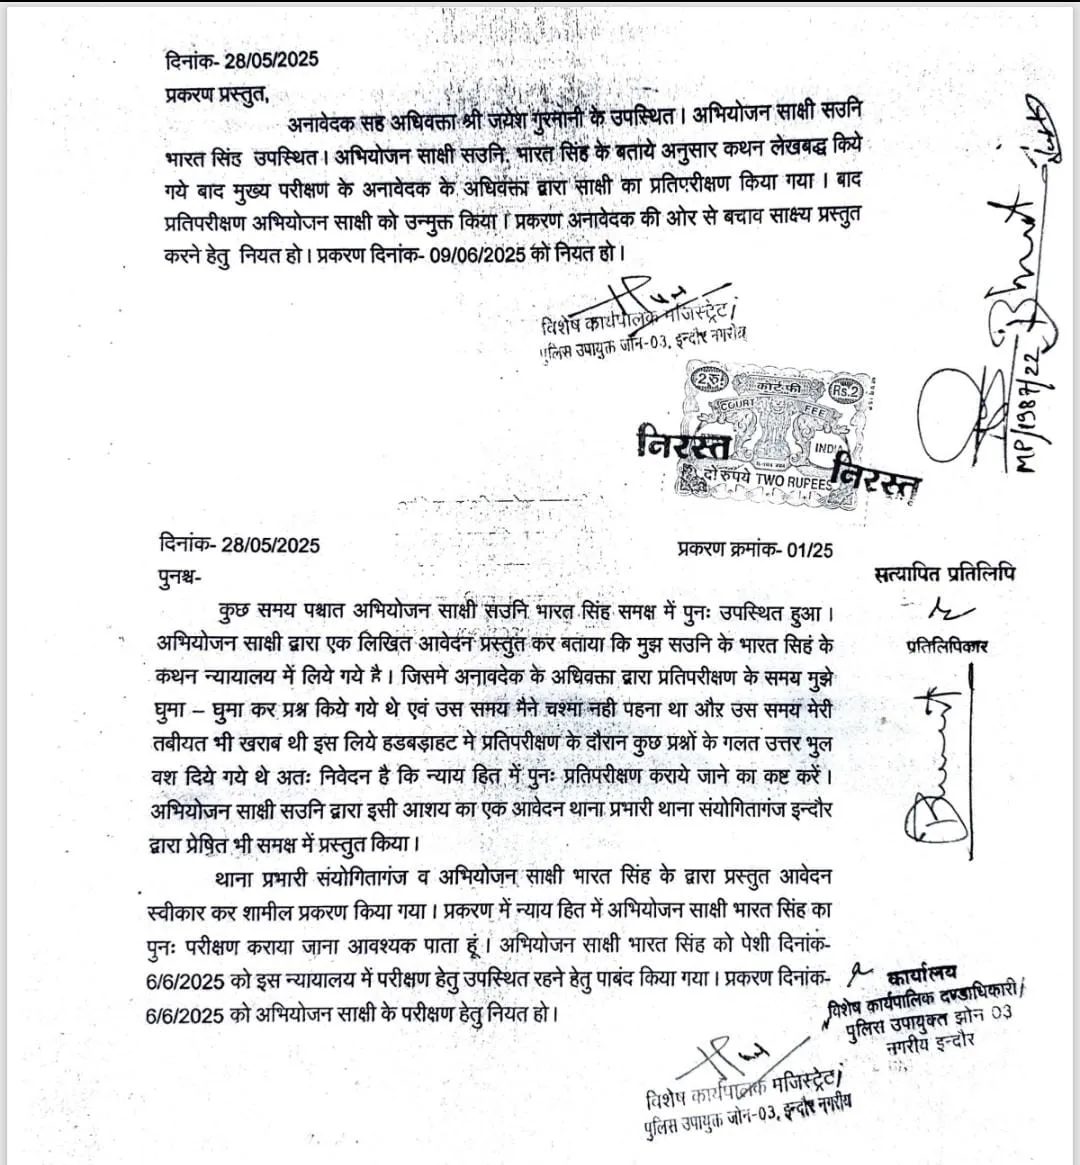 दिनांक- 28/05/2025
प्रकरण प्रस्तुत,
अनावेदक सह अधिवक्ता श्री जयेश गुरनानी के उपस्थित। अभियोजन साक्षी सउनि
भारत सिंह उपस्थित। अभियोजन साक्षी सउनि. भारत सिंह के बताये अनुसार कथन लेखबद्ध किये
गये बाद मुख्य परीक्षण के अनावेदक के अधिवक्ता द्वारा साक्षी का प्रतिपरीक्षण किया गया। बाद
प्रतिपरीक्षण अभियोजन साक्षी को उन्मुक्त किया। प्रकरण अनावेदक की ओर से बचाव साक्ष्य प्रस्तुत
करने हेतु नियत हो। प्रकरण दिनांक- 09/06/2025 को नियत हो।
विशेष कार्यपालक मजिस्ट्रेट/
पुलिस उपायुक्त जोन-03, इन्दौर नगरीय
MP/1987/22
2रु.
कोर्ट फी
Rs.2
COURT FEE
INDIA
निरस्त
निरस्त
दो रुपये TWO RUPEES
दिनांक- 28/05/2025
प्रकरण क्रमांक- 01/25
पुनश्च-
सत्यापित प्रतिलिपि
कुछ समय पश्चात अभियोजन साक्षी सउनि भारत सिंह समक्ष में पुनः उपस्थित हुआ।
अभियोजन साक्षी द्वारा एक लिखित आवेदन प्रस्तुत कर बताया कि मुझ सउनि के भारत सिहं के
प्रतिलिपिकार
कथन न्यायालय में लिये गये है। जिसमे अनावदेक के अधिवक्ता द्वारा प्रतिपरीक्षण के समय मुझे
घुमा – घुमा कर प्रश्न किये गये थे एवं उस समय मैने चश्मा नही पहना था और उस समय मेरी
तबीयत भी खराब थी इस लिये हडबड़ाहट मे प्रतिपरीक्षण के दौरान कुछ प्रश्नों के गलत उत्तर भुल
वश दिये गये थे अतः निवेदन है कि न्याय हित में पुनः प्रतिपरीक्षण कराये जाने का कष्ट करें।
अभियोजन साक्षी सउनि द्वारा इसी आशय का एक आवेदन थाना प्रभारी थाना संयोगितागंज इन्दौर
द्वारा प्रेषित भी समक्ष में प्रस्तुत किया।
थाना प्रभारी संयोगितागंज व अभियोजन साक्षी भारत सिंह के द्वारा प्रस्तुत आवेदन
स्वीकार कर शामील प्रकरण किया गया। प्रकरण में न्याय हित में अभियोजन साक्षी भारत सिंह का
पुनः परीक्षण कराया जाना आवश्यक पाता हूं। अभियोजन साक्षी भारत सिंह को पेशी दिनांक-
6/6/2025 को इस न्यायालय में परीक्षण हेतु उपस्थित रहने हेतु पाबंद किया गया। प्रकरण दिनांक-
6/6/2025 को अभियोजन साक्षी के परीक्षण हेतु नियत हो।
कार्यालय
विशेष कार्यपालिक दण्डाधिकारी/
पुलिस उपायुक्त झोन 03
नगरीय इन्दौर
विशेष कार्यपालक मजिस्ट्रेट/
पुलिस उपायुक्त जोन-03, इन्दौर नगरीय